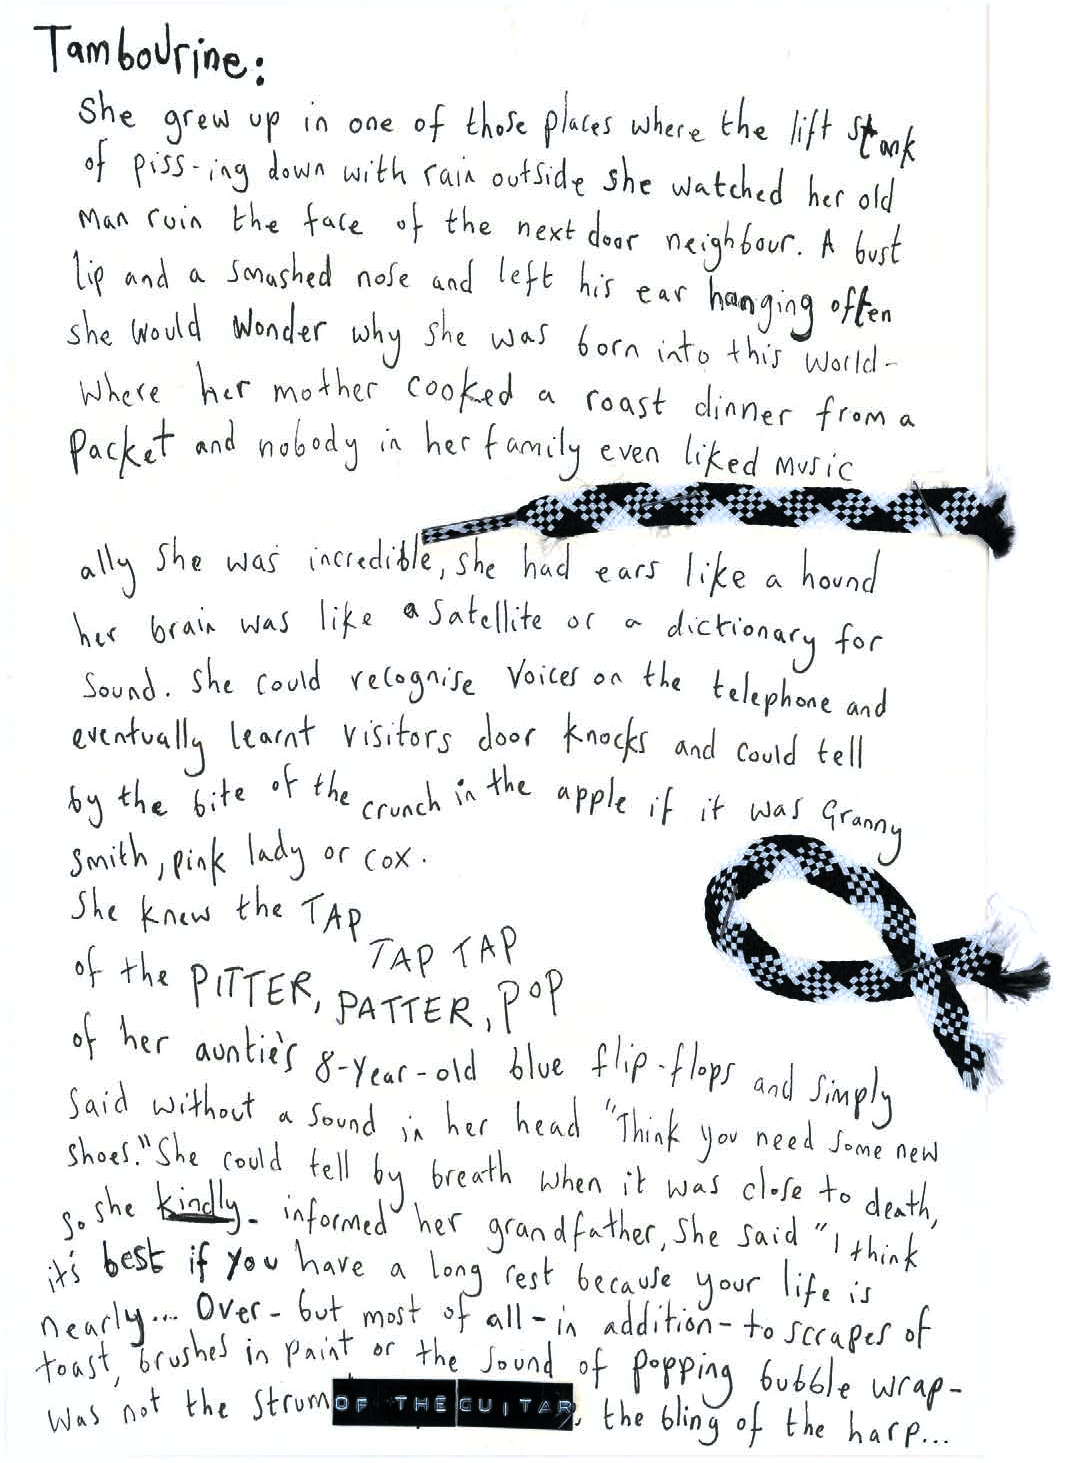 Tambourine:
She grew up in one of those places where the lift stank
of piss-ing down with rain outside she watched her old
man ruin the face of the next door neighbour. A bust
lip and a smashed nose and left his ear hanging often
she would wonder why she was born into this world-
where her mother cooked a roast dinner from a
packet and nobody in her family even liked music
ally she was incredible, she had ears like a hound
her brain was like a satellite or a dictionary for
sound. She could recognise voices on the telephone and
eventually learnt visitors door knocks and could tell
by the bite of the crunch in the apple if it was Granny
Smith, pink lady or cox.
She knew the TAP
TAP TAP
of the PITTER, PATTER, POP
of her auntie's 8-year-old blue flip-flops and simply
said without a sound in her head "Think you need some new
shoes." She could tell by breath when it was close to death,
so she kindly- informed her grandfather, she said "I think
it's best if you have a long rest because your life is
nearly... Over- but most of all - in addition - to scrapes of
toast, brushes in paint or the sound of popping bubble wrap-
was not the strum OF THE GUITAR, the bling of the harp...